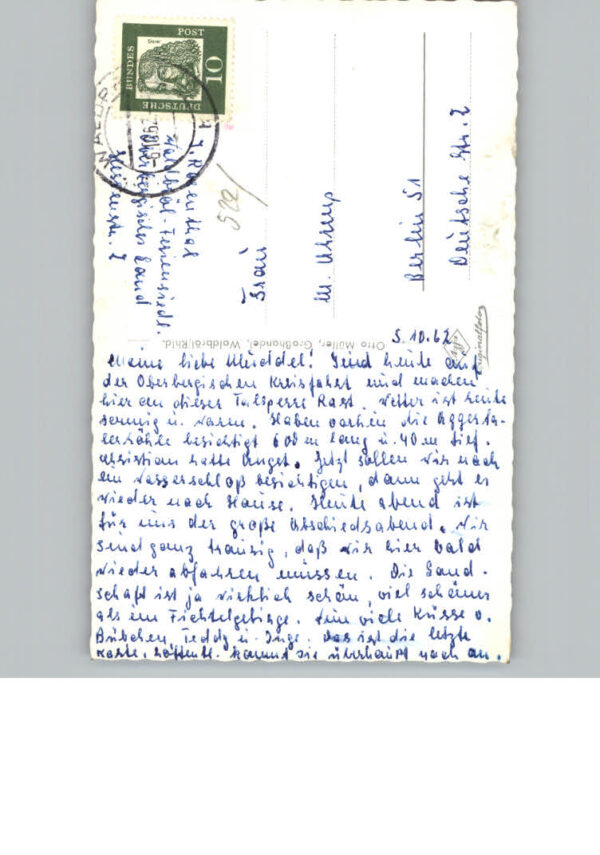 5.10.62
Meine liebe Muddel! Sind heute auf
der Oberbergischen Kreisfahrt und machen
hier an dieser Talsperre Rast. Wetter ist heute
sonnig u. warm. Haben vorhin die Aggerta-
lerhöhle besichtigt 600 m lang u. 40 m tief.
Christian hatte Angst. Jetzt sollen wir noch
ein Wasserschloß besichtigen, dann geht es
wieder nach Hause. Heute abend ist
für uns der große Abschiedsabend. Wir
sind ganz traurig, daß wir hier bald
wieder abfahren müssen. Die Land-
schaft ist ja wirklich schön, viel schöner
als im Fichtelgebirge. viele Küsse v.
Bübchen, Teddy u. Inge. Das ist die letzte
Karte. Hoffentl. kommt sie überhaupt noch an.
Frau
M.
Berlin 51
Deutsche Str. 2
J. Rosenthal
Waldbröl-Feriensiedl.
Oberbergisches Land
502/
DEUTSCHE
BUNDES
POST
10
WALDBR
Otto Müller, Großhandel, Waldbröl/Rhld.
Agfa
Originalfoto